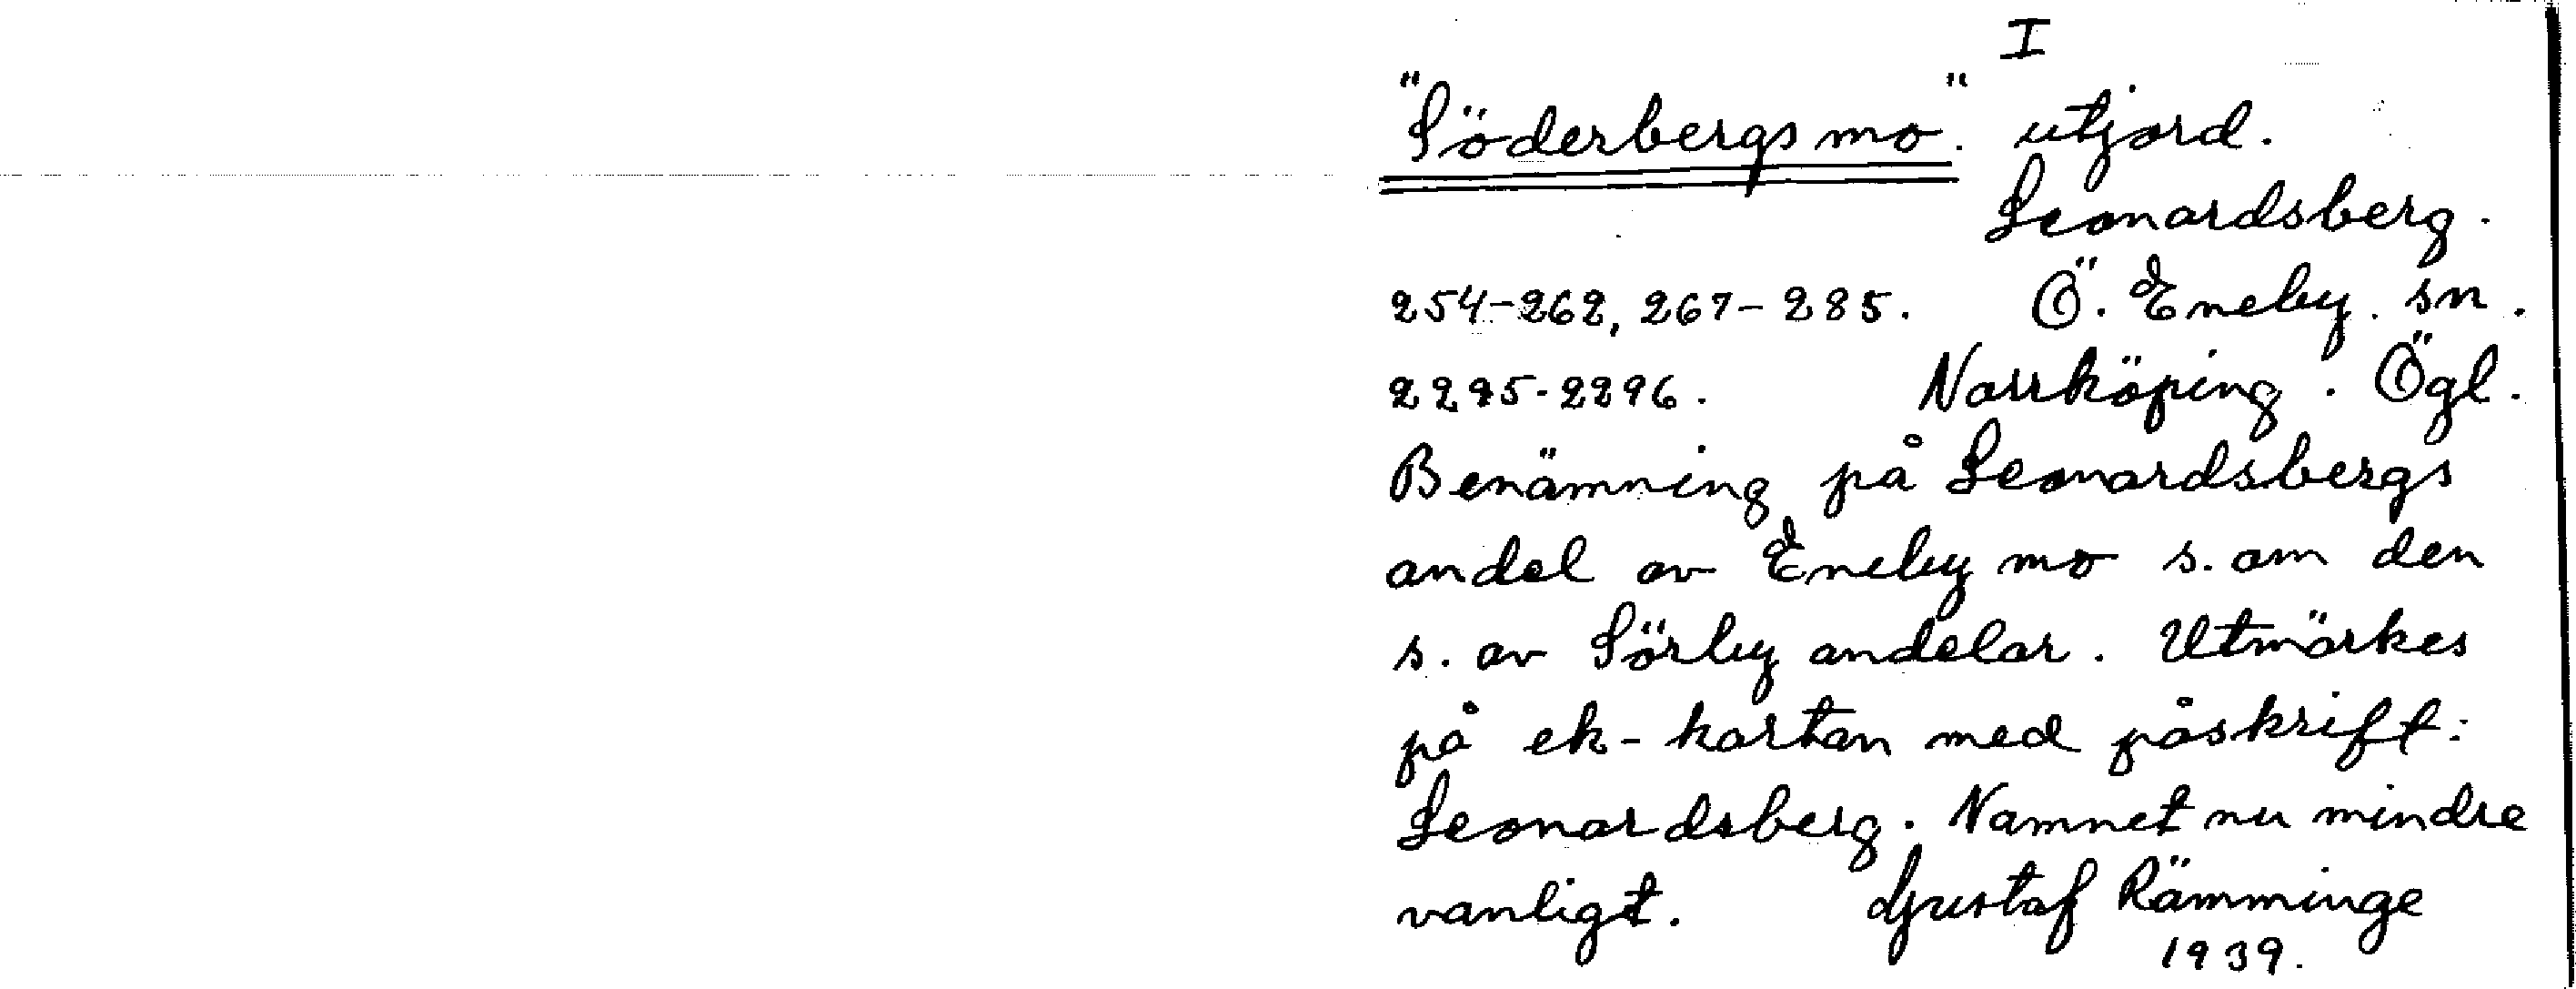 I
"Söderbergsmo". utjord.
Leonardsberg.
254-262, 267-285. Ö. Eneby. sn.
2295-2296. Norrköping. Ögl.
Benämning på Leonardsbergs
andel av Eneby mo s. om den
s. av Sörby andelar. Utmärkes
på ek-kartan med påskrift:
Leonardsberg. Namnet nu mindre
vanligt. Gustaf Rämminge
1939.